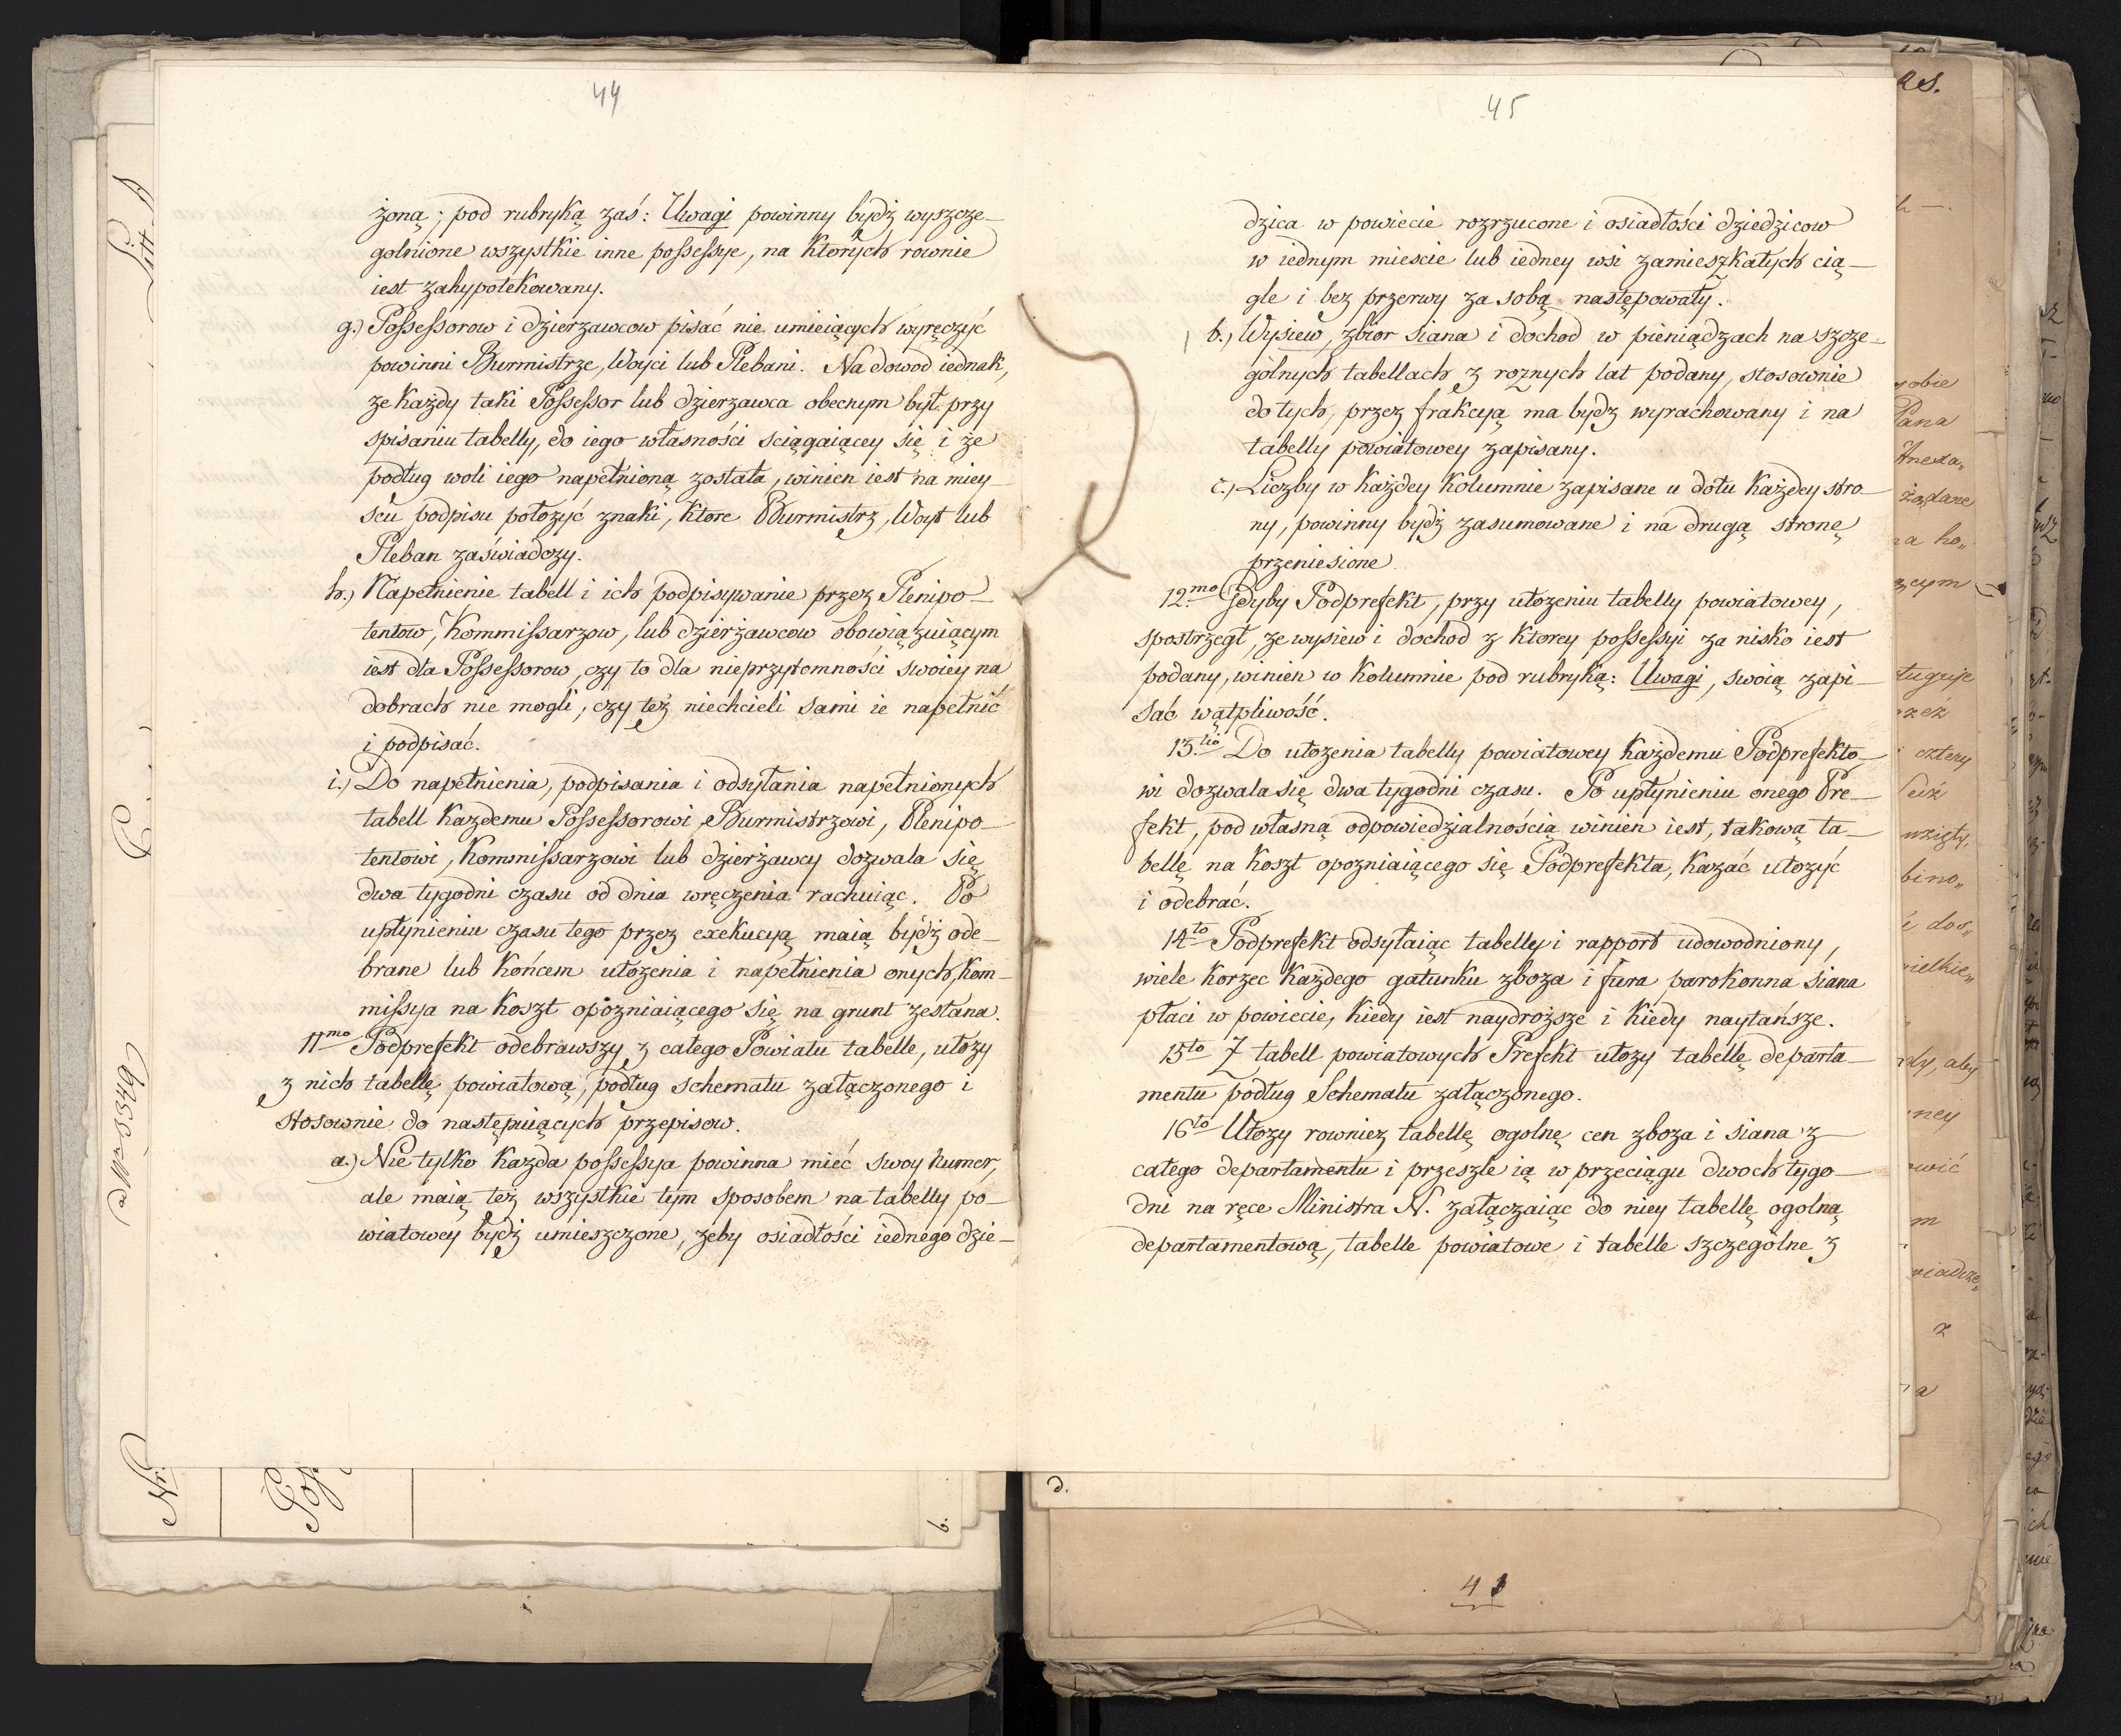 44
żoną; pod rubryką zaś: Uwagi powinny bydź wyszcze-
golnione wszystkie inne possessye, na których rownie
iest zahypotekowany.
g.) Possessorow i dzierzawcow pisać nie umieiących wyręczyć
powinni Burmistrze, Woyci lub Plebani. Na dowod iednak,
ze każdy taki Possessor lub dzierzawca obecnym był przy
spisaniu tabelly, do iego własności sciągaiącey się i że
podług woli iego napełnioną została, winien iest na miey-
scu podpisu położyć znaki, ktore Burmistrz, Woyt lub
Pleban zaświadczy.
h.) Napełnienie tabell i ich podpisywanie przez Plenipo-
tentow, Kommissarzow, lub dzierżawcow obowiązuiącym
iest dla Possessorow, czy to dla nieprzytomności swoiey na
dobrach nie mogli, czy też niechcieli sami ie napełnić
i podpisać.
i.) Do napełnienia, podpisania i odsyłania napełnionych
tabell każdemu Possessorowi, Burmistrzowi, Plenipo-
tentowi, Kommissarzowi lub dzierżawcy dozwala się
dwa tygodni czasu od dnia wręczenia rachuiąc. Po
upłynieniu czasu tego przez exekucyą maią bydź ode-
brane lub końcem ułozenia i napełnienia onych, kom-
missya na koszt opozniaiącego się na grunt zesłana.
11mo Podprefekt odebrawszy z całego Powiatu tabelle, ułozy
z nich tabellę powiatową, podług schematu załączonego i
stosownie do następuiących przepisow.
a.) Nie tylko każda possessya powinna mieć swoy numer,
ale maią też wszystkie tym sposobem na tabelly po-
wiatowey bydź umieszczone, żeby osiadłości iednego dzie-
45
dzica w powiecie rozrzucone i osiadłości dziedzicow
w iednym mieście lub iedney wsi zamieszkałych cią-
gle i bez przerwy za sobą następowały.
b.) Wysiew, zbior siana i dochod w pieniądzach na szcze-
gólnych tabellach z roznych lat podany, stosownie
do tych, przez frakcyą ma bydź wyrachowany i na
tabelly powiatowey zapisany.
c.) Liczby w każdey kolumnie zapisane u dołu każdey stro-
ny, powinny bydź zasumowane i na drugą stronę
przeniesione.
12mo Gdyby Podprefekt, przy ułozeniu tabelly powiatowey,
spostrzegł, że wysiew i dochod z ktorey possessyi za nisko iest
podany, winien w kolumnie pod rubryką: Uwagi, swoią zapi-
sać wątpliwość.
13tio Do ułozenia tabelly powiatowey każdemu Podprefekto-
wi dozwala się dwa tygodni czasu. Po upłynieniu onego Pre-
fekt, pod własną odpowiedzialnością winien iest, takową ta-
bellę na koszt opozniaiącego się Podprefekta, kazać ułozyć
i odebrać.
14to Podprefekt odsyłaiąc tabelly i rapport udowodniony,
wiele korzec każdego gatunku zboza i fura parokonna siana
płaci w powiecie, kiedy iest naydroższe i kiedy naytańsze.
15to Z tabell powiatowych Prefekt ułozy tabellę departa-
mentu podług Schematu załączonego.
16to Ułozy rowniez tabellę ogolnę cen zboza i siana z
całego departamentu i przeszle ią w przeciągu dwoch tygo-
dni na ręce Ministra N. załączaiąc do niey tabellę ogolną
departamentową, tabelle powiatowe i tabelle szczególne z
Litt. A
Nr.
6.
d.
obie
Pana
żądane
cztery
wzięty,